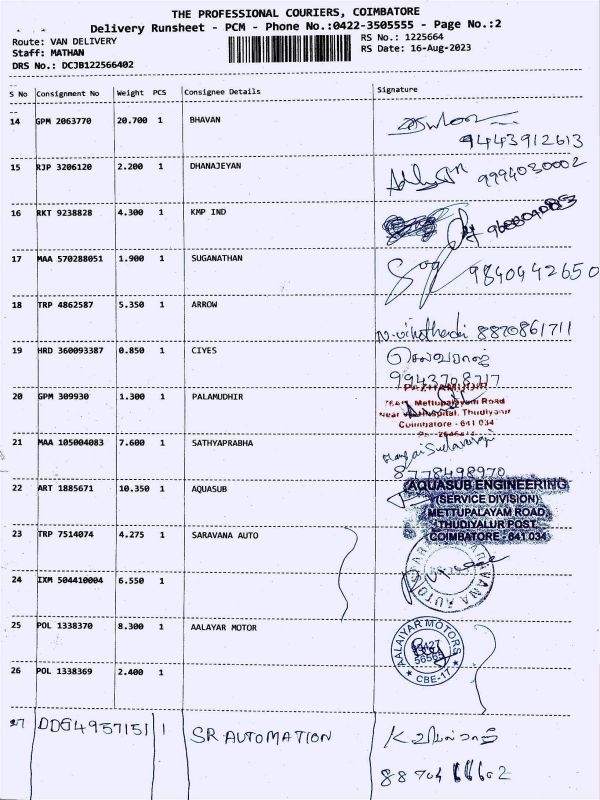 THE PROFESSIONAL COURIERS, COIMBATORE
Delivery Runsheet - PCM - Phone No.:0422-3505555 - Page No.:2
Route: VAN DELIVERY
Staff: MATHAN
DRS No.: DCJB122566402
RS No.: 1225664
RS Date: 16-Aug-2023
S No Consignment No Weight PCS Consignee Details Signature
14 GPM 2063770 20.700 1 BHAVAN
9443912613
15 RJP 3206120 2.200 1 DHANAJEYAN
9994030002
16 RKT 9238828 4.300 1 KMP IND
17 MAA 570288051 1.900 1 SUGANATHAN
9840442650
18 TRP 4862587 5.350 1 ARROW
8870861711
19 HRD 360093387 0.850 1 CIYES
செல்வராஜ
9943708717
20 GPM 309930 1.300 1 PALAMUDHIR
PAZHAMUDIR
Mettupalayam Road
Near Hospital, Thudiyalur
Coimbatore - 641 034
21 MAA 105004083 7.600 1 SATHYAPRABHA
8778498970
22 ART 1885671 10.350 1 AQUASUB
AQUASUB ENGINEERING
(SERVICE DIVISION)
METTUPALAYAM ROAD
THUDIYALUR POST
COIMBATORE - 641 034
23 TRP 7514074 4.275 1 SARAVANA AUTO
24 IXM 504410004 6.550 1
25 POL 1338370 8.300 1 AALAYAR MOTOR
AALAIYAR MOTORS
CBE-17
26 POL 1338369 2.400 1
27 DDG4957151 1 SR AUTOMATION